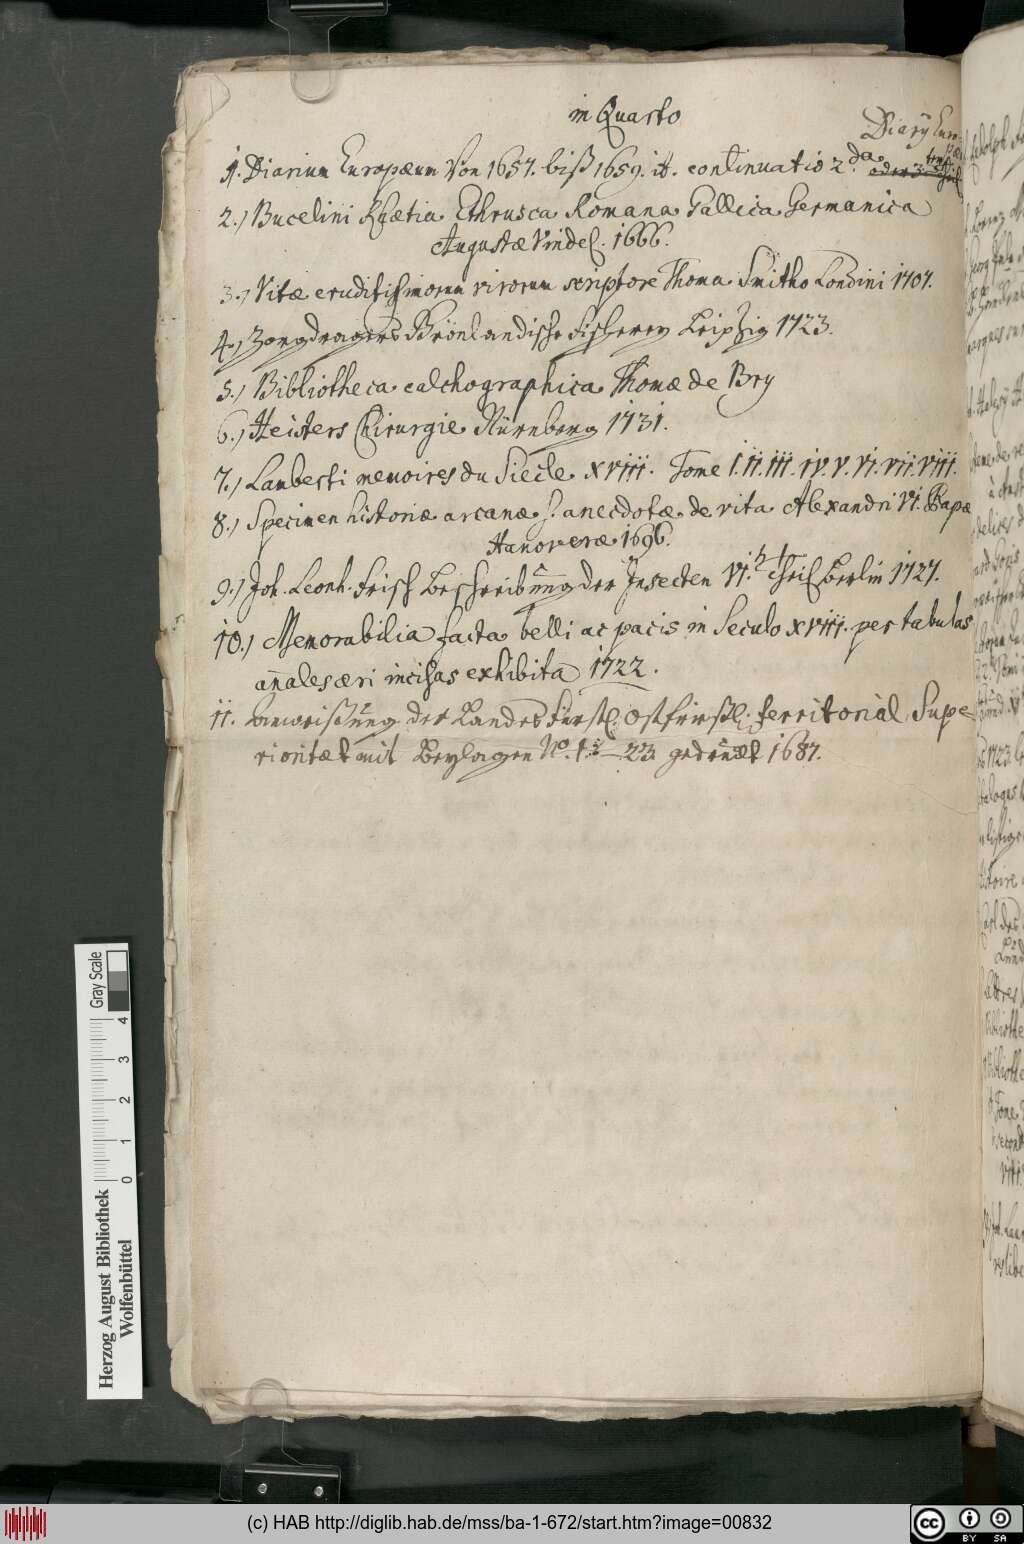 in Quarto
Diarÿ Euro-
pæi
1. Diarium Europæum Von 1657. biß 1659. it. continuatio 2.da oder 3.
2.) Bucelini Rhætia Ethrusca Romana Gallica Germanica
Augustæ Vindel. 1666.
3.) Vitæ eruditissimorum virorum scriptore Thoma Smitho Londini 1707.
4.) Zorgdragers Grönländische fischerey Leipzig 1723.
5.) Bibliotheca calchographica Thomæ de Bry
6.) Heisters Chirurgie Nürnberg 1731.
7.) Lamberti memoires du Siecle XVIII. Tome I. II. III. IV. V. VI. VII. VIII.
8.) Specimen historiæ arcanæ s. anecdotæ de vita Alexandri VI. Papæ
Hanoveræ 1696.
9.) Joh. Leonh. Frisch Beschreibung der Insecten VI. Theil Berlin 1727.
10.) Memorabilia facta belli ac pacis in Seculo XVIII. per tabulas
añales æri incisas exhibita 1722.
11. Anweißung der Landes Fürstl. Ostfrießl. territorial Supe
rioritæt mit Beylagen No. 1 - 23. gedruckt 1687.
Gray Scale
4
3
2
1
0
Herzog August Bibliothek
Wolfenbüttel
(c) HAB http://diglib.hab.de/mss/ba-1-672/start.htm?image=00832
cc BY SA